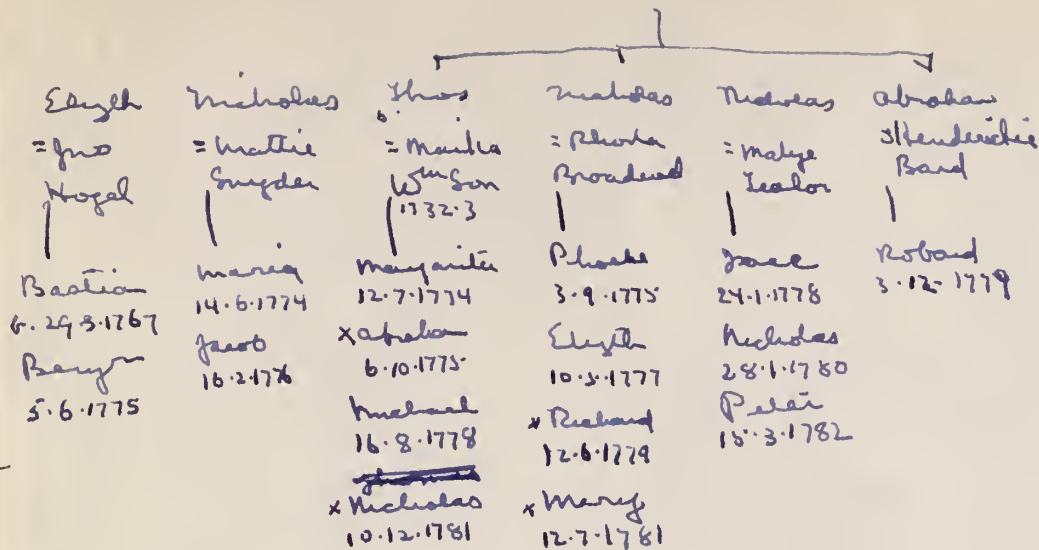 Elizth
= Jno
Hogel
Bastian
b. 29.3.1767
Benjn
5.6.1775
Nicholas
= Mattie
Snyder
Maria
14.6.1774
Jacob
16.2.1776
Thos
b.
= Marika
Wmson
1732.3
Margarita
12.7.1774
x Abraham
6.10.1775
Michael
16.8.1778
x Nicholas
10.12.1781
Nicholas
= Rhoda
Phoebe
3.9.1775
Elizth
10.5.1777
x Richard
12.6.1779
x Mary
12.7.1781
Nicholas
=
24.1.1778
Nicholas
28.1.1780
Peter
15.3.1782
Abraham
Band
Roboard
3.12.1779